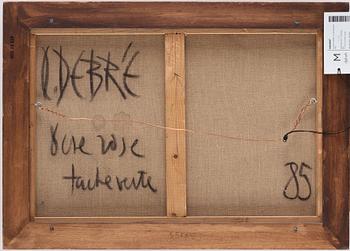 O.DEBRÉ
Ocre rose
tache verte
85
M